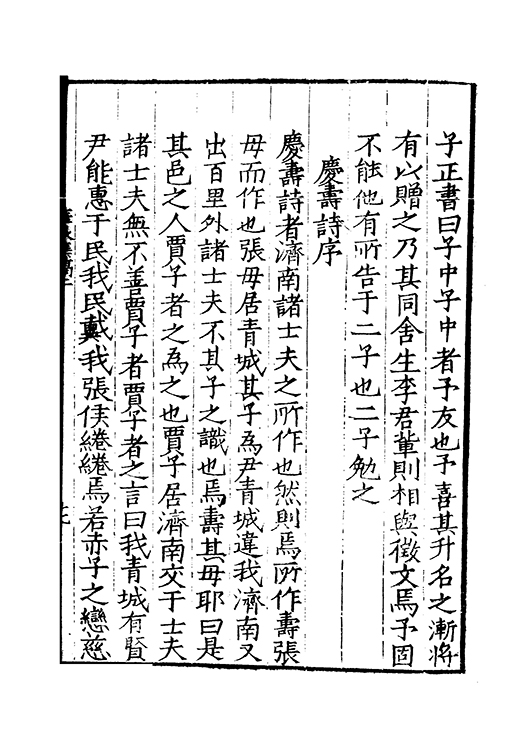 子正書曰子中子中者予友也予喜其升名之漸將
有以贈之乃其同舍生李君輩則相與徵文焉予固
不能他有所告于二子也二子勉之
慶壽詩序
慶壽詩者濟南諸士夫之所作也然則焉所作壽張
母而作也張母居青城其子為尹青城違我濟南又
出百里外諸士夫不其子之識也焉壽其母耶曰是
其邑之人賈子者之為之也賈子居濟南交于士夫
諸士夫無不善賈子者賈子者之言曰我青城有賢
尹能惠于民我民戴我張侯綣綣焉若赤子之戀慈